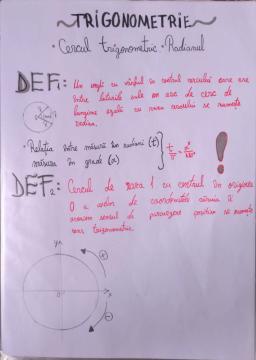 TRIGONOMETRIE
• Cercul trigonometric • Radianul
DEF1: Un unghi cu vârful în centrul cercului care are
între laturile sale un arc de cerc de
lungime egală cu raza cercului se numește
radian.
• Relația între măsura în radiani (t)
măsura în grade (α)
t/π = α/180°
!
DEF2: Cercul de raza 1 cu centrul în originea
O a axelor de coordonate căruia îi
sensul de parcurgere pozitiv se numește
cerc trigonometric.
y
+
O
x
−